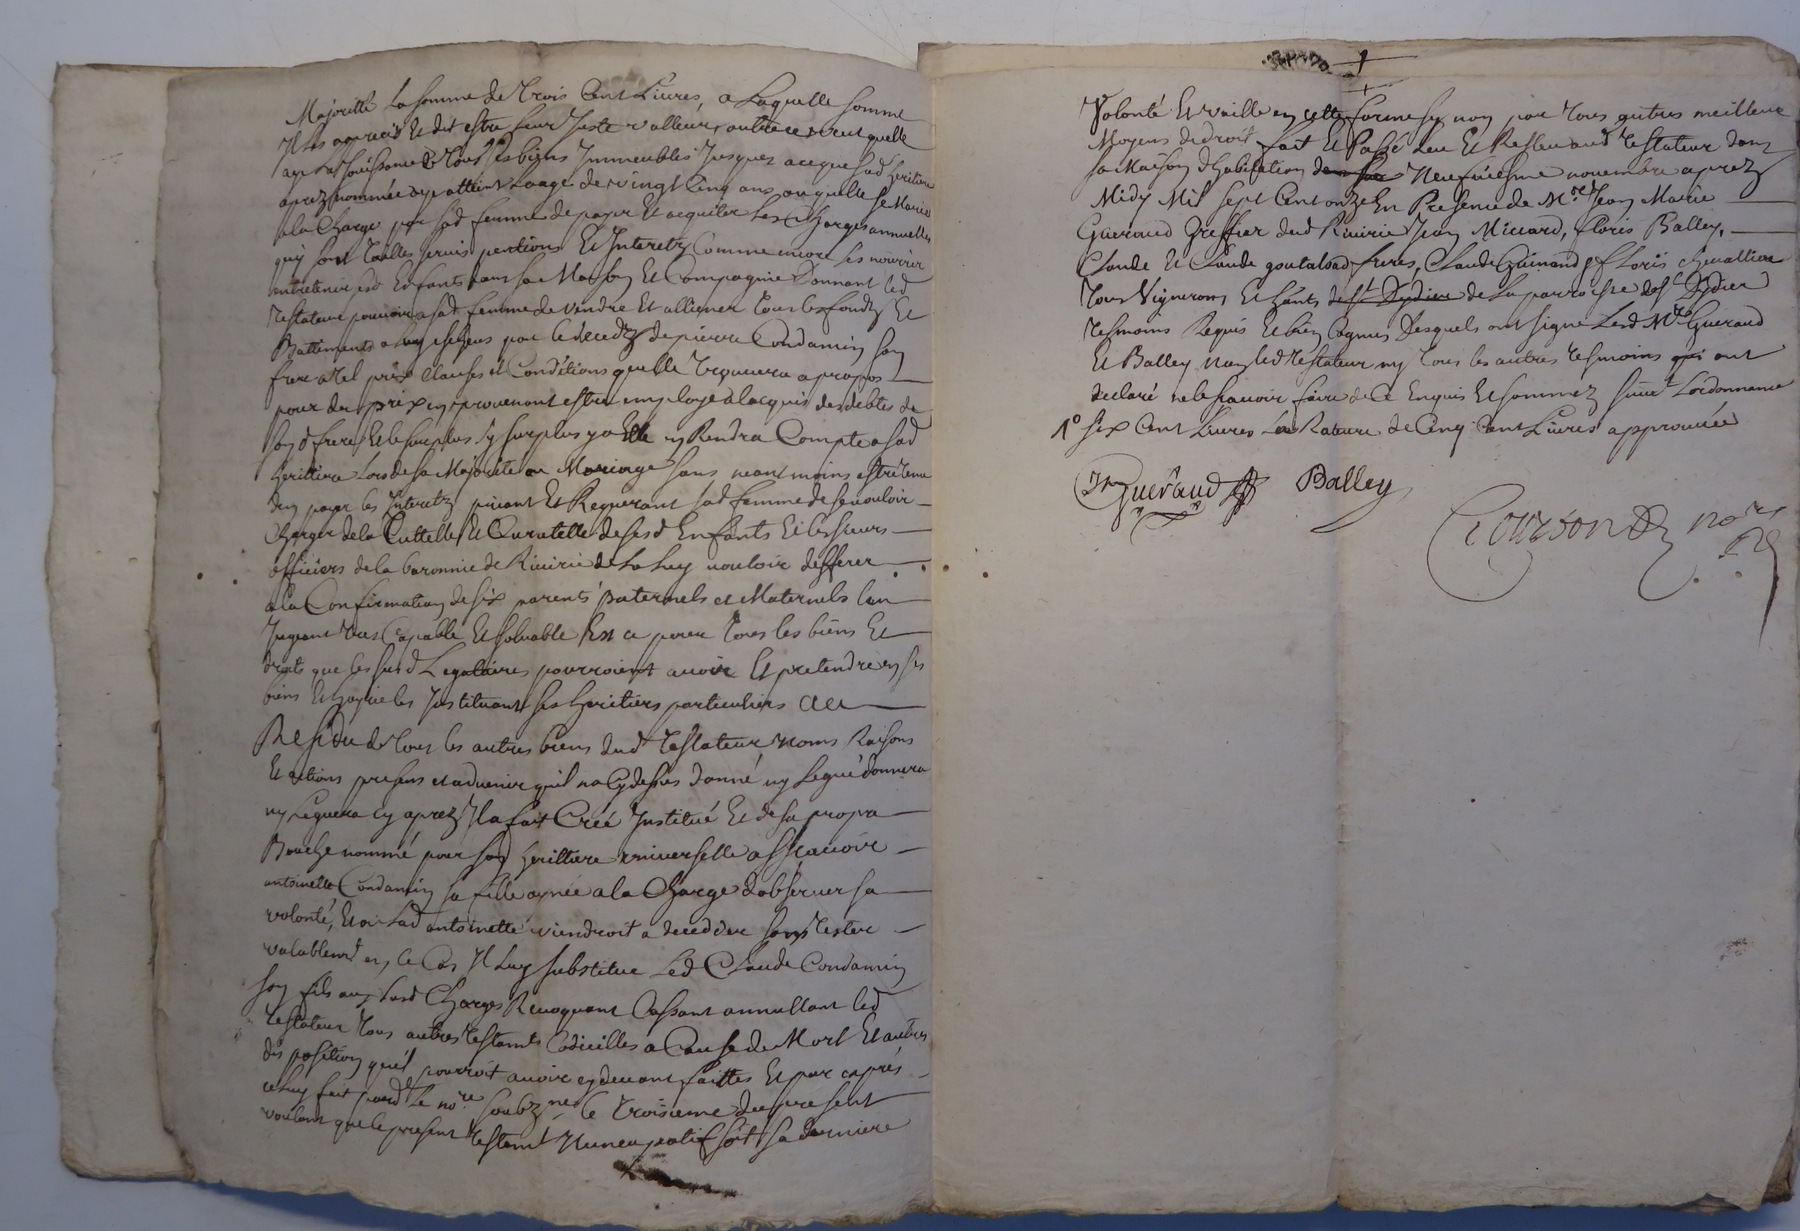 Majorité la somme de trois Cent Livres, a Laquelle somme
Il les apprecié Et dit estre leur Juste valleur, outre ce veut quelle
aye La Jouissance de tous ses biens Immeubles Jusques a ceque sad heritiere
aprez nommée aye atteint Laage de vingt Cinq ans ou quelle se Marie
a la Charge par sad femme de payer Et acquiter Les Charges annuelles
quy sont tailles servis pentions Et Interetz Comme encore les nourrir
entretenir sesd Enfants dans sa Maison Et Compagnie Donnant led
testateur pouvoir a sad femme de vendre Et alliener tous les fondz Et
Battiments a luy escheus par le decedz de pierre Condamin son
frere a tel prix Clauses et Conditions quelle trouvera a propos
pour du prix en provenant estre employé a lacquis des debtes de
sond frere Et le surplus sy surplus y a Elle en Rendra Compte a sad
heritiere Lors de sa Majorité ou Mariage sans neantmoins estre tenue
den payer les Interetz priant Et Requerant sad femme de se vouloir
charger de la Tuttelle Et Curatelle de sesd Enfants Et les sieurs
officiers de la baronnie de Riverie de La luy vouloir defferer
a la Confirmation de six parents paternels et Maternels len
Jugeant tres Capable Et solvable Est ce pour tous les biens Et
droits que les susd Legataires pourroient avoir Et pretendre en ses
biens Et hoyrie les Instituant ses heritiers particuliers au
Residu de tous les autres biens dud testateur noms Raisons
Et actions presens et advenir quil na Cy dessus donné ny legué donnera
ny leguera cy aprez Il a fait Creé Institué Et de sa propre
Bouche nommé pour son heritiere universelle assavoir
antoinette Condamin sa fille aynée a la Charge dobserver sa
volonté, Et ou Lad antoinette viendroit a deceder sans tester
valablemt en ce Cas Il Luy substitue Led Claude Condamin
son fils aux susd Charges Revoquant Cassant annullant led
testateur tous autres testamts Codicilles a Cause de Mort Et autres
disposition quil pourroit avoir cy devant faittes Et par exprés
celuy fait pard le nore soubzné le troisieme du present
voulant que le present testamt Nuncupatif soit sa derniere
Volonté Et vaille en cette forme sy non par tous autres meilleur
Moyens de droit fait Et Passé Leu Et Releu aud testateur dans
sa Maison d'habitation Neufviesme novembre aprez
Midy Mil sept Cent onze En Presence de Mre Jean Marie
Gueraud Greffier dud Riverie Jean Miciard, floris Balley,
Claude Et Claude goutalard freres, Claude Guinand Et floris chevallier
tous Vignerons Et habts de St Dydier de La parroisse de St Dydier
tesmoins Requis Et bien Cognus Desquels ont signé Lesd Mre Gueraud
Et Balley non led testateur ny tous les autres tesmoins qui ont
declaré ne le scavoir faire de Ce Enquis Et sommez suivt Lordonnance
1o six Cent Livres La Rature de Cinq Cent Livres approuvée
Gueraud Balley
Courson nore